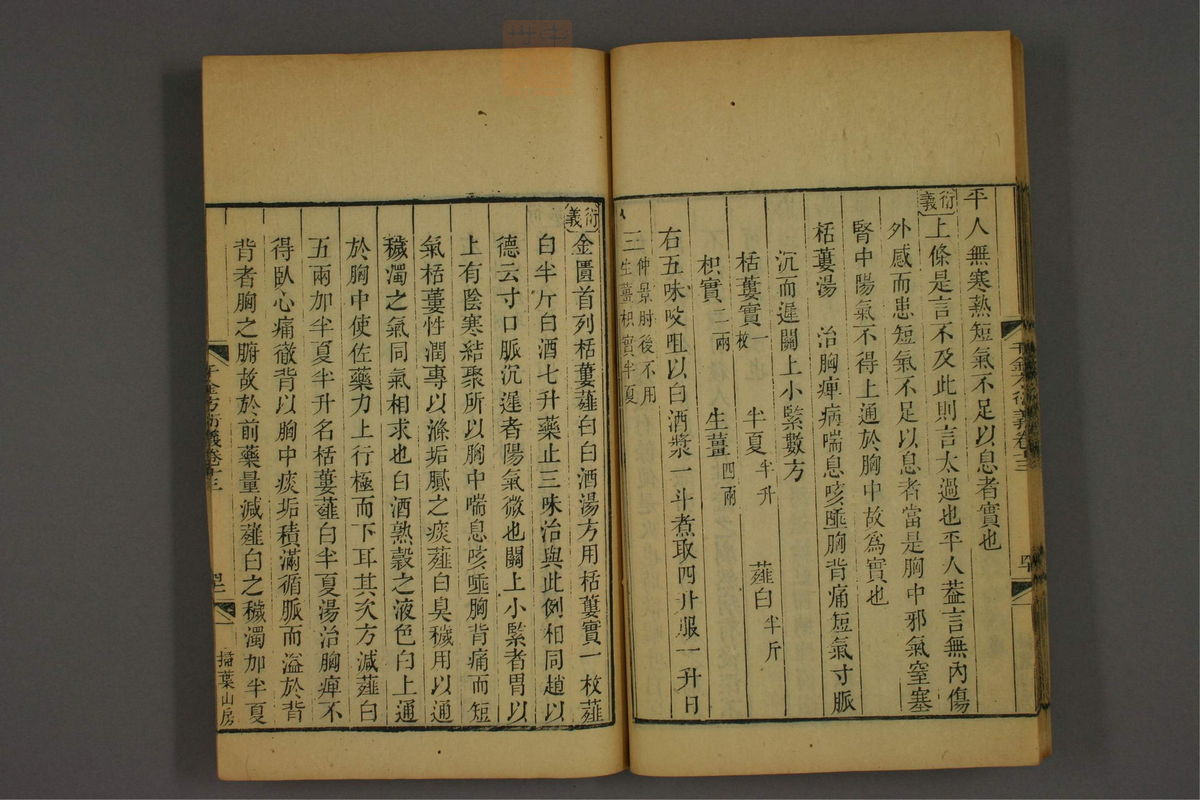 平人無寒熱短氣不足以息者實也
衍義
上條是言不及此則言太過也平人蓋言無內傷
外感而患短氣不足以息者當是胸中邪氣窒塞
腎中陽氣不得上通於胸中故爲實也
栝蔞湯 治胸痺病喘息咳唾胸背痛短氣寸脈
沉而遲關上小緊數方
栝蔞實一枚 半夏半升 薤白半斤
枳實二兩 生薑四兩
右五味㕮咀以白酒漿一斗煮取四升服一升日
三仲景肘後不用生薑枳實半夏
衍義
金匱首列栝蔞薤白白酒湯方用栝蔞實一枚薤
白半斤白酒七升藥止三味治與此例相同趙以
德云寸口脈沉遲者陽氣微也關上小緊者胃以
上有陰寒結聚所以胸中喘息咳唾胸背痛而短
氣栝蔞性潤專以滌垢膩之痰薤白臭穢用以通
穢濁之氣同氣相求也白酒熟穀之液色白上通
於胸中使佐藥力上行極而下耳其次方減薤白
五兩加半夏半升名栝蔞薤白半夏湯治胸痺不
得臥心痛徹背以胸中痰垢積滿循脈而溢於背
背者胸之腑故於前藥量減薤白之穢濁加半夏
千金方衍義卷十三
掃葉山房